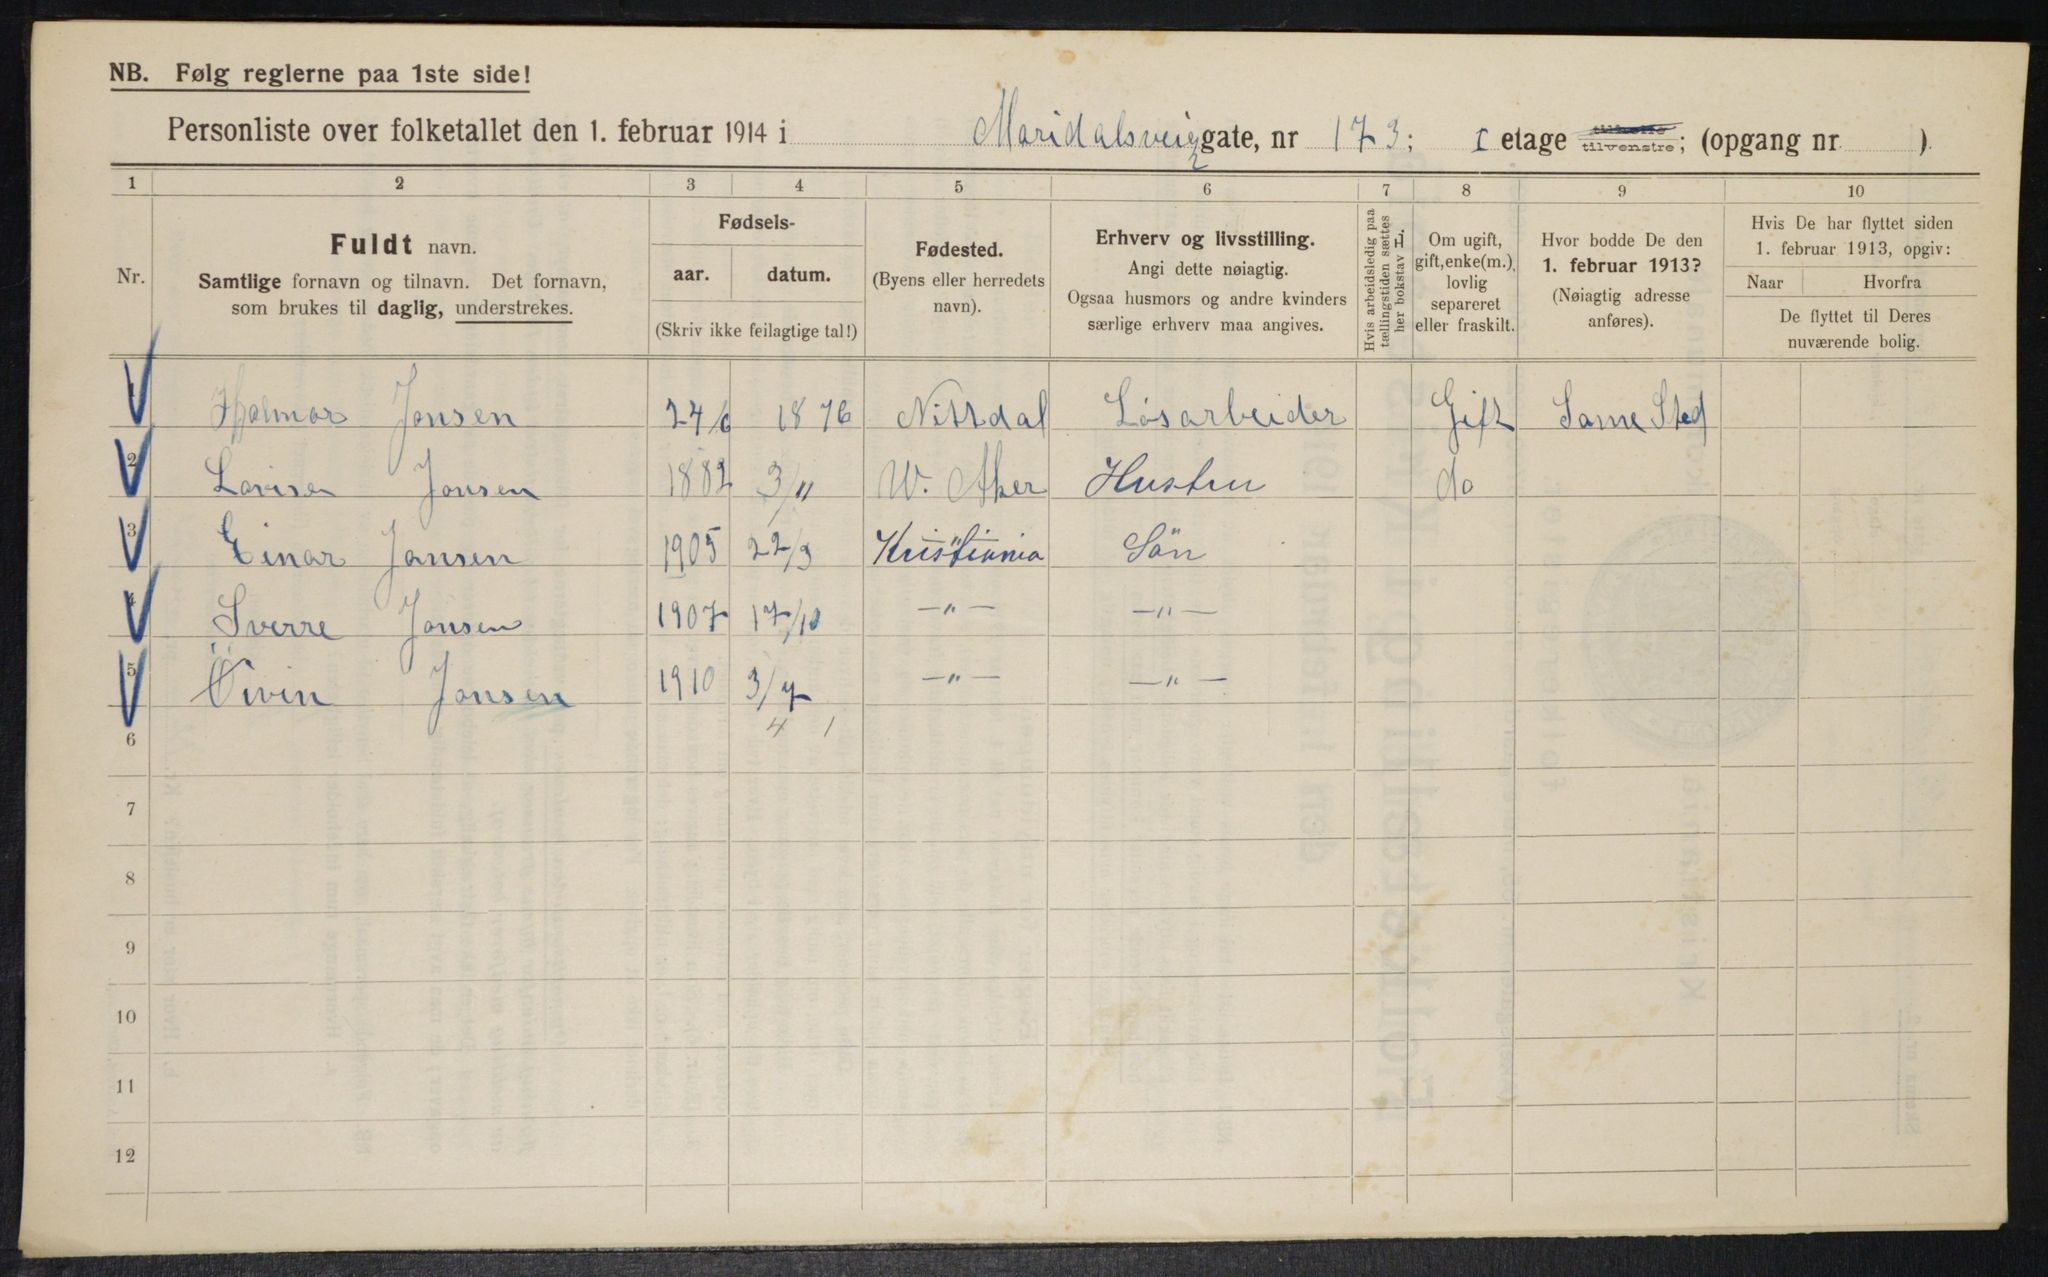 NB. Følg reglerne paa 1ste side!
Personliste over folketallet den 1. februar 1914 i Maridalsveig gate, nr 173; I etage tilhøire tilvenstre; (opgang nr )
1 2 3 4 5 6 7 8 9 10
Nr.
Fuldt navn.
Samtlige fornavn og tilnavn. Det fornavn,
som brukes til daglig, understrekes.
Fødsels-
aar. datum.
(Skriv ikke feilagtige tal!)
Fødested.
(Byens eller herredets
navn).
Erhverv og livsstilling.
Angi dette nøiagtig.
Ogsaa husmors og andre kvinders
særlige erhverv maa angives.
Hvis arbeidsledig paa
tællingstiden sættes
her bokstav H.
Om ugift,
gift, enke(m.),
lovlig
separeret
eller fraskilt.
Hvor bodde De den
1. februar 1913?
(Nøiagtig adresse
anføres).
Hvis De har flyttet siden
1. februar 1913, opgiv:
Naar Hvorfra
De flyttet til Deres
nuværende bolig.
1 Hjalmar Jansen 24/6 1876 Nittdal Løsarbeider Gift Same Sted
2 Lovise Jansen 1882 3/11 W. Aker Hustru do
3 Einar Jansen 1905 22/3 Kristiania Sön
4 Sverre Jansen 1907 17/10 —"— —"—
5 Öivin Jansen 1910 3/7 —"— —"—
4 1
6
7
8
9
10
11
12